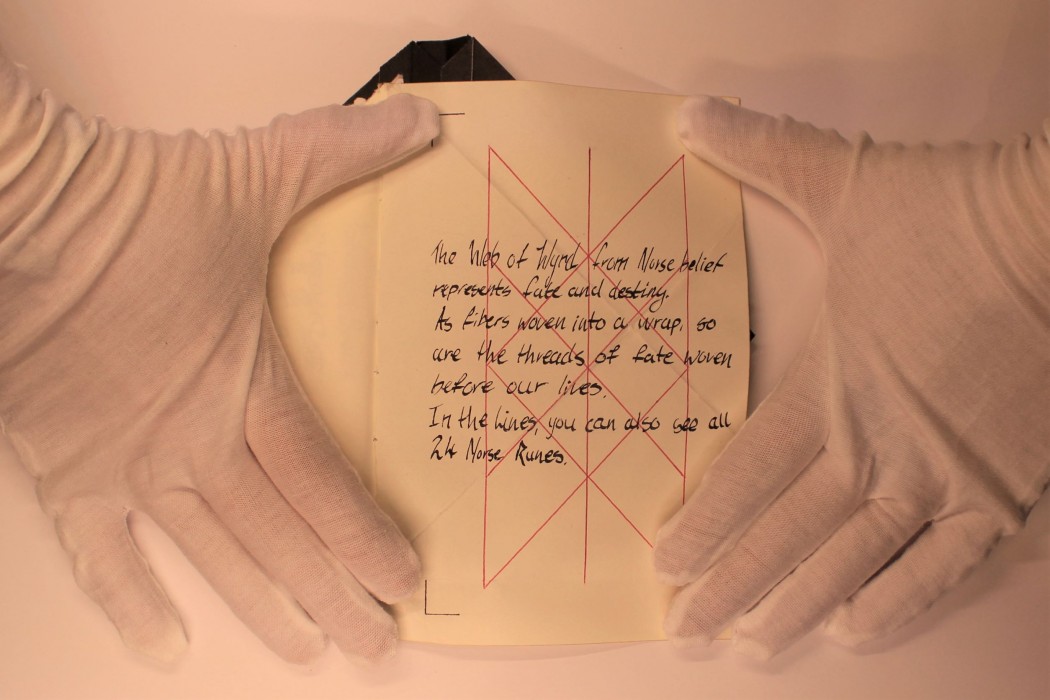 The Web of Wyrd from Norse belief
represents fate and destiny.
As fibers woven into a wrap, so
are the threads of fate woven
before our lives.
In the Lines, you can also see all
24 Norse Runes.